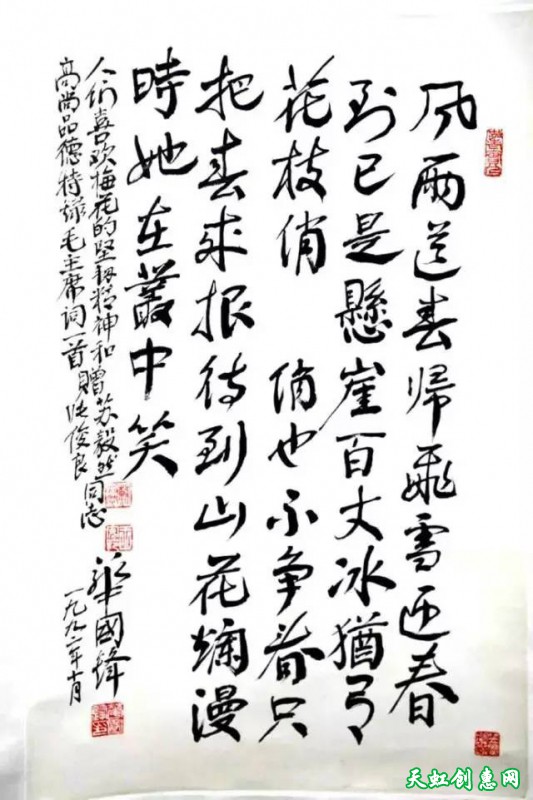 风雨送春帰飛雪迎春
到已是懸崖百丈冰猶有
花枝俏 俏也不争春只
把春来报待到山花爛漫
時她在叢中笑
人们喜欢梅花的坚韧精神和赠苏毅然同志
高尚品德特録毛主席词一首贈张俊良
华國锋
一九九二年十月
天虹创惠网